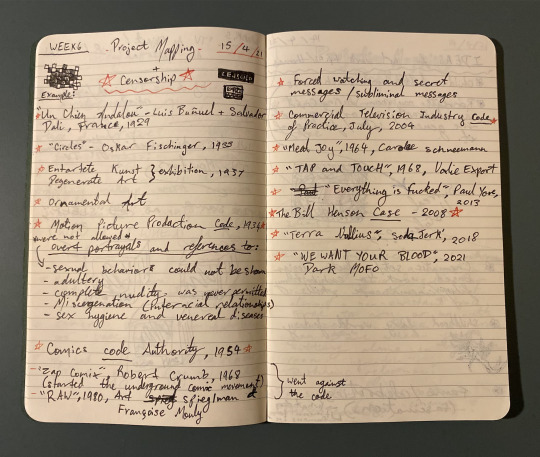 WEEK6 - Project Mapping - 15/4/21
+
☆ Censorship ☆ CENSORED
Example:
"Un Chien Andalou" - Luis Buñuel + Salvador
Dali, France, 1929
"Circles" - Oskar Fischinger, 1933
Entartete Kunst } exhibition, 1937
Degenerate Art
Ornamental Art
Motion Picture Production Code, 1934
were not allowed
overt portrayals and references to:
- sexual behaviors could not be shown
- adultery
- complete nudity was never permitted
- Miscegenation (interracial relationships)
- sex hygiene and venereal diseases
Comics code Authority, 1954
- "Zap Comix", Robert Crumb, 1968
(started the underground comix movement)
- "RAW", 1980, Art spieglman &
Françoise Mouly
Forced watching and secret
messages / subliminal messages
Commercial Television Industry code
of Practice, July, 2004
"Meat Joy", 1964, Carolee schneemann
"TAP and TOUCH", 1968, Valie Export
"Everything is Fucked", Paul Yore,
2013
The Bill Henson Case - 2008
"Terra Nullius", soda Jerk, 2018
"WE WANT YOUR BLOOD", 2021
Dark MOFO
} went against
the code